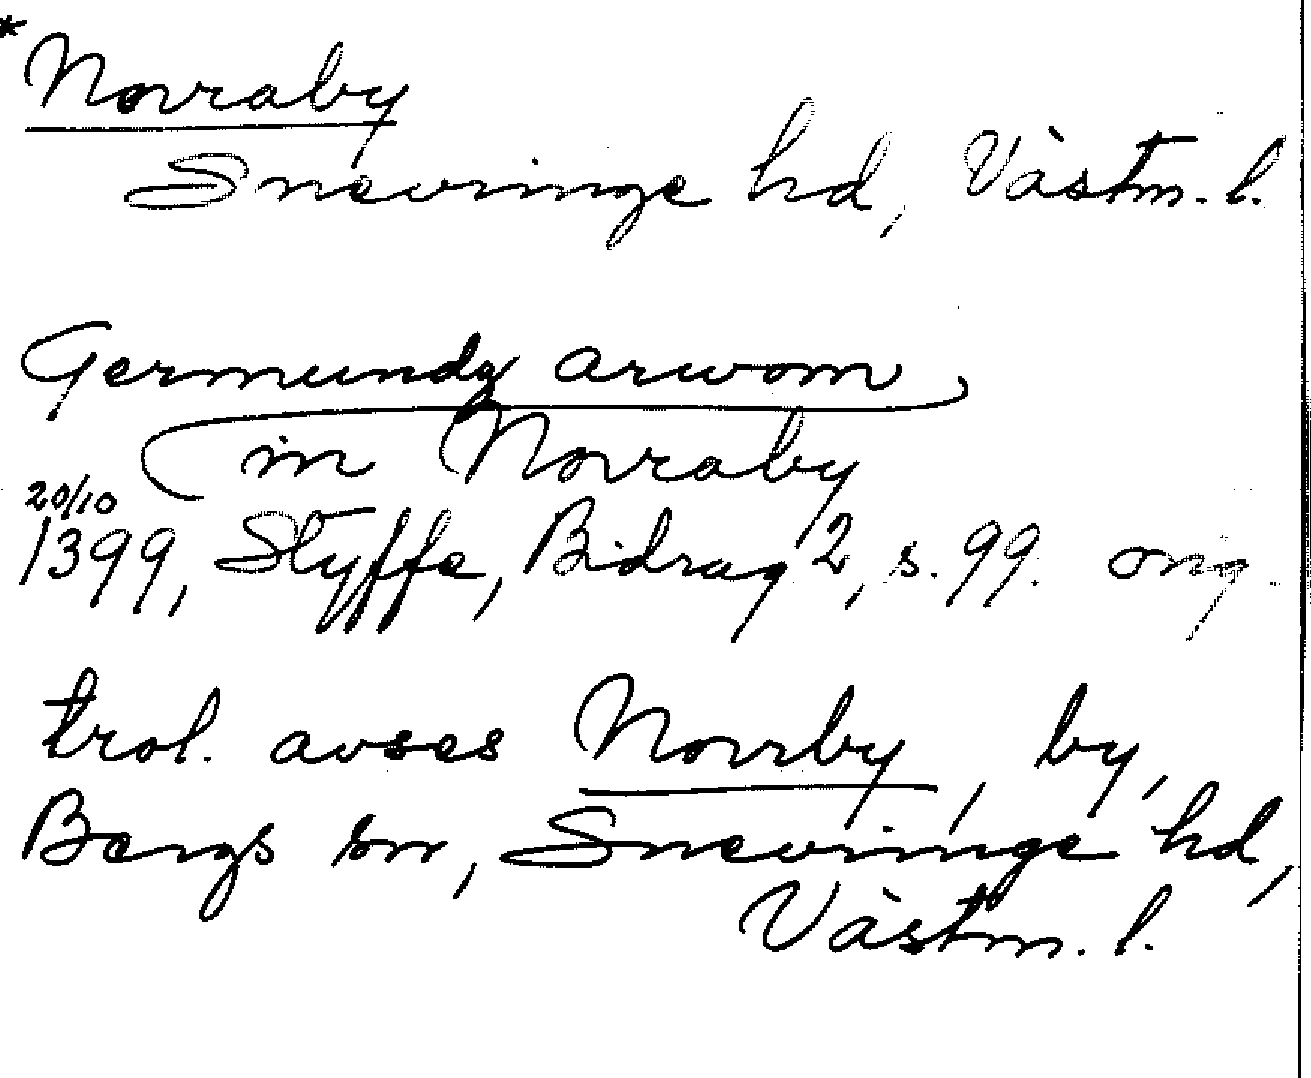 *Norraby
Snevringe hd, Västm. l.
Germundz arwom
in Norraby
20/10
1399, Styffe, Bidrag 2, s. 99. orig.
trol. avses Norrby, by,
Bergs sn, Snevringe hd,
Västm. l.